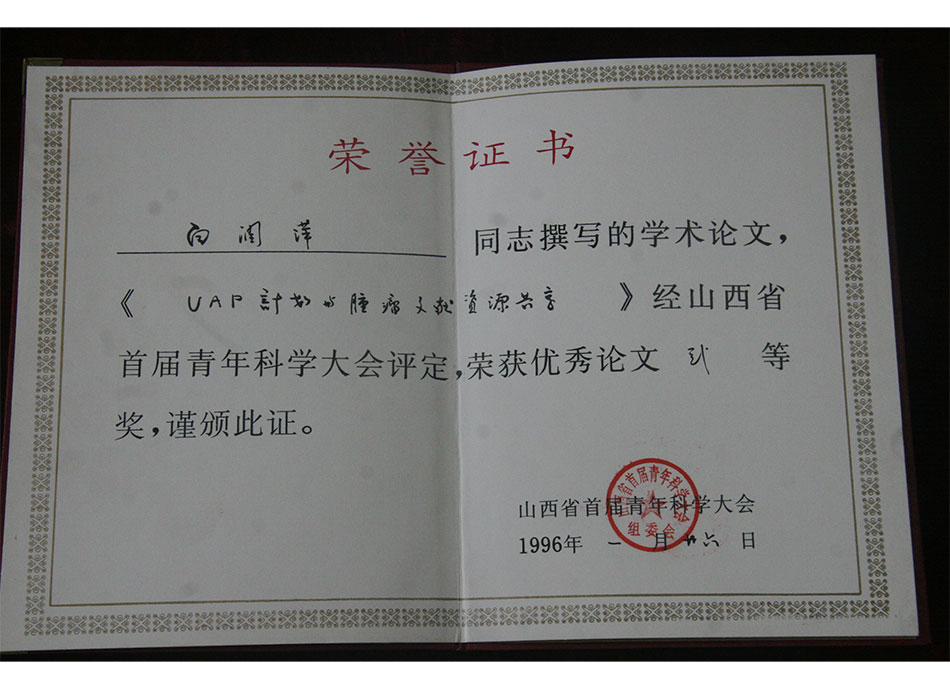 荣誉证书
白润萍 同志撰写的学术论文，
《 UAP 計划与腫瘤文献资源共享 》经山西省
首届青年科学大会评定，荣获优秀论文 贰 等
奖，谨颁此证。
山西省首届青年科学大会
组委会
山西省首届青年科学大会
1996年 一 月 廿六 日